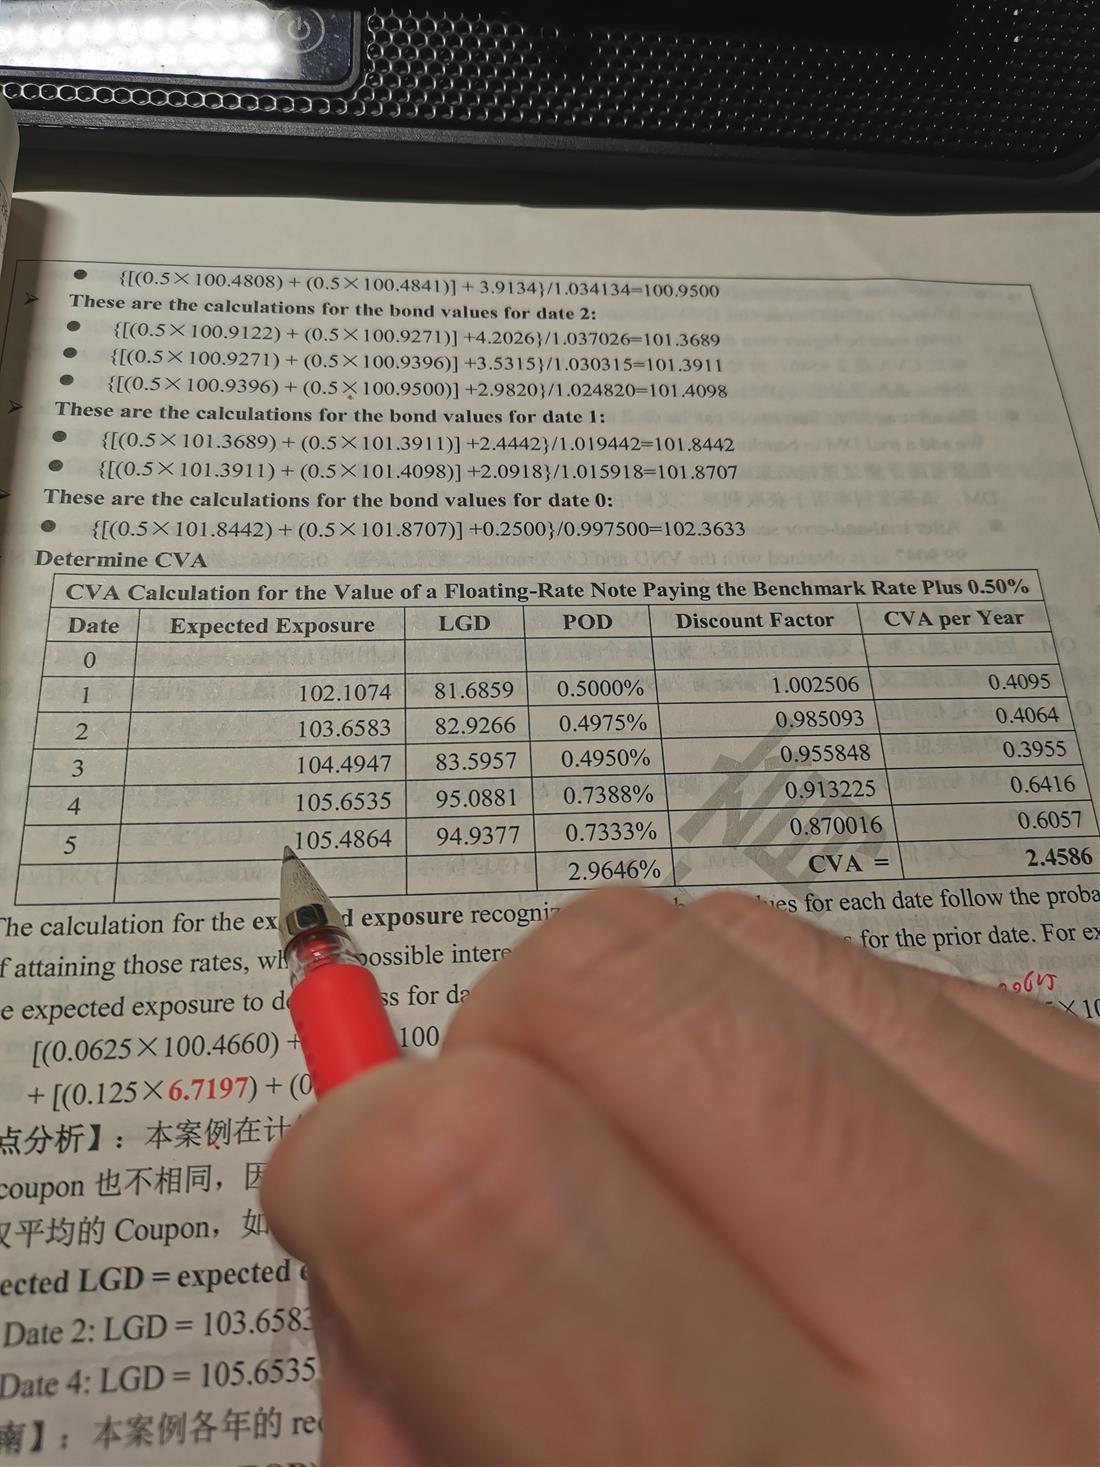 {[(0.5×100.4808) + (0.5×100.4841)] + 3.9134}/1.034134=100.9500
These are the calculations for the bond values for date 2:
{[(0.5×100.9122) + (0.5×100.9271)] +4.2026}/1.037026=101.3689
{[(0.5×100.9271) + (0.5×100.9396)] +3.5315}/1.030315=101.3911
{[(0.5×100.9396) + (0.5×100.9500)] +2.9820}/1.024820=101.4098
These are the calculations for the bond values for date 1:
{[(0.5×101.3689) + (0.5×101.3911)] +2.4442}/1.019442=101.8442
{[(0.5×101.3911) + (0.5×101.4098)] +2.0918}/1.015918=101.8707
These are the calculations for the bond values for date 0:
{[(0.5×101.8442) + (0.5×101.8707)] +0.2500}/0.997500=102.3633
Determine CVA
CVA Calculation for the Value of a Floating-Rate Note Paying the Benchmark Rate Plus 0.50%
Date Expected Exposure LGD POD Discount Factor CVA per Year
0
1 102.1074 81.6859 0.5000% 1.002506 0.4095
2 103.6583 82.9266 0.4975% 0.985093 0.4064
3 104.4947 83.5957 0.4950% 0.955848 0.3955
4 105.6535 95.0881 0.7388% 0.913225 0.6416
5 105.4864 94.9377 0.7333% 0.870016 0.6057
2.9646% CVA = 2.4586
The calculation for the ex d exposure recogniz ues for each date follow the proba
f attaining those rates, wh possible intere s for the prior date. For ex
e expected exposure to de ss for da
[(0.0625×100.4660) + 100 ×10
+ [(0.125×6.7197) + (0
点分析】：本案例在计
coupon 也不相同，因
平均的 Coupon，如
ected LGD = expected e
Date 2: LGD = 103.6583
Date 4: LGD = 105.6535
南】：本案例各年的 rec